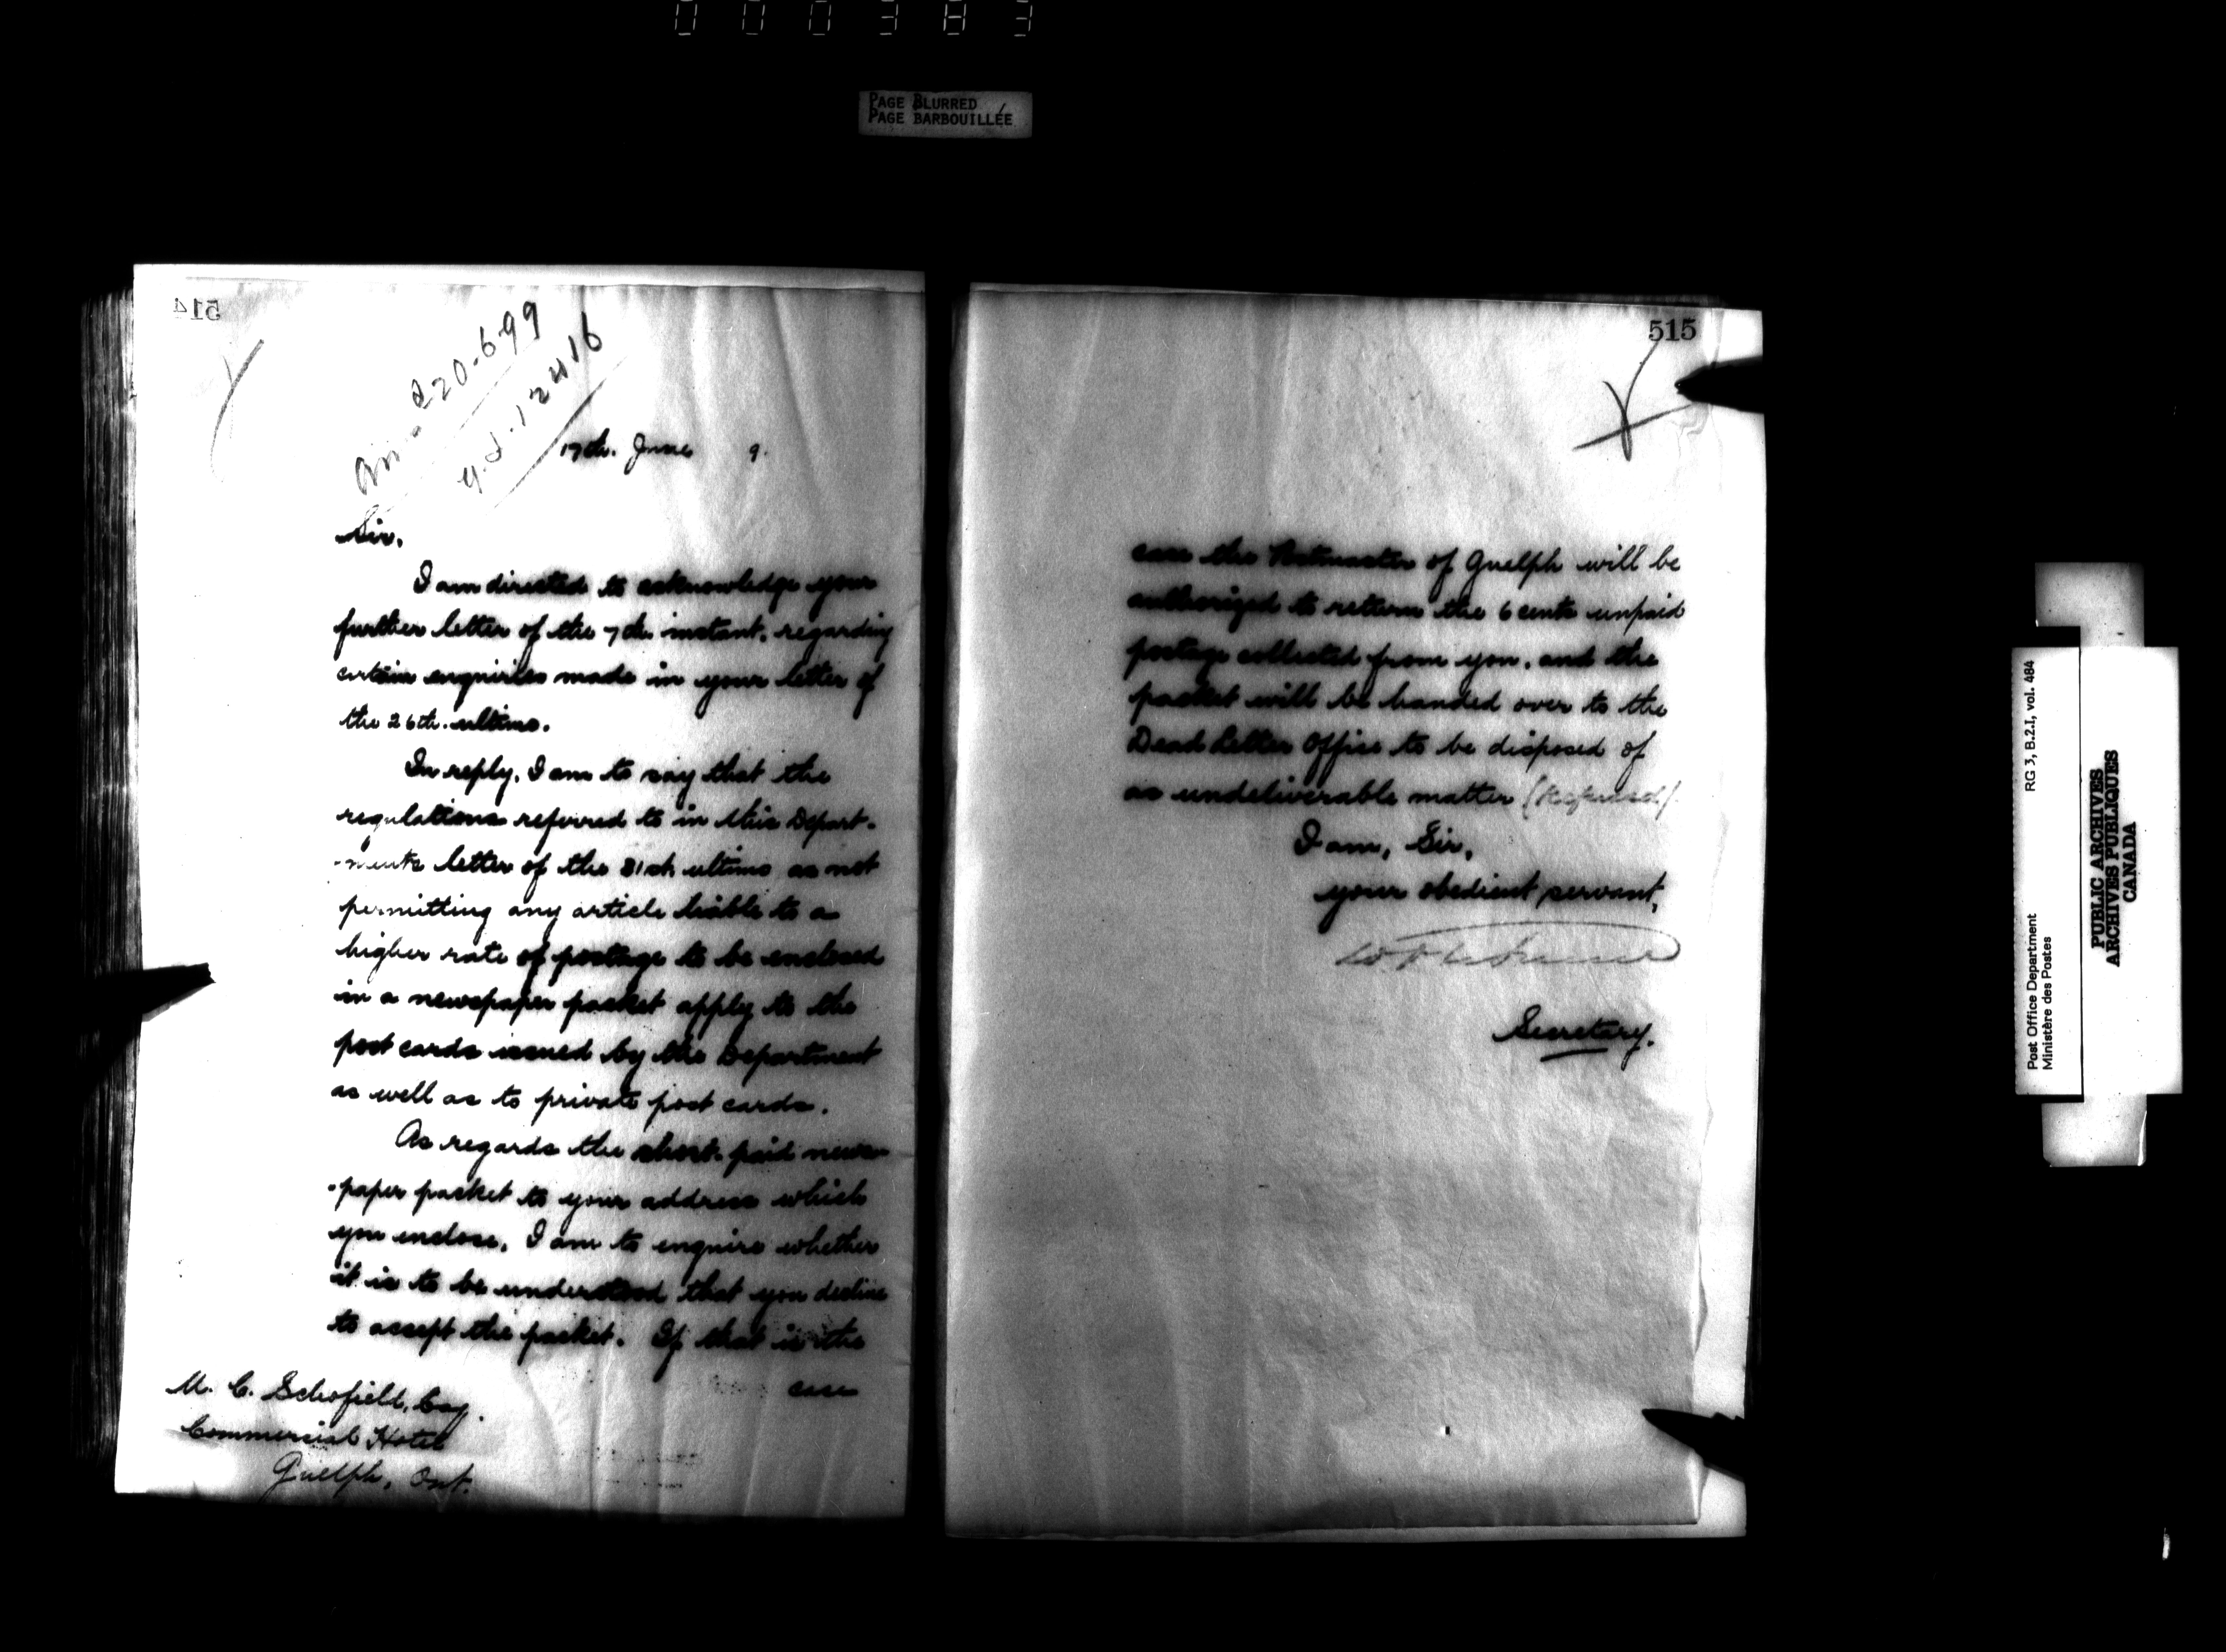 000383
PAGE BLURRED
PAGE BARBOUILLÉE
514
220.699
12416
17th. June 9.
Sir,
I am directed to acknowledge your
further letter of the 7th. instant, regarding
certain enquiries made in your letter of
the 26th. ultimo.
In reply, I am to say that the
regulations referred to in this Depart-
-ments letter of the 31st ultimo as not
permitting any article liable to a
higher rate of postage to be enclosed
in a newspaper packet apply to the
post cards issued by the Department
as well as to private post cards.
As regards the short-paid news-
-paper packet to your address which
you enclose, I am to enquire whether
it is to be understood that you decline
to accept the packet. If that is the
case
M. C. Schofield, Esq.
Commercial Hotel
Guelph, Ont.
515
case the Postmaster of Guelph will be
authorized to return the 6 cents unpaid
postage collected from you, and the
packet will be handed over to the
Dead Letter Office to be disposed of
as undeliverable matter (Refused).
I am, Sir,
your obedient servant,
Secretary.
Post Office Department
Ministère des Postes
RG 3, B.2.I, vol. 484
PUBLIC ARCHIVES
ARCHIVES PUBLIQUES
CANADA